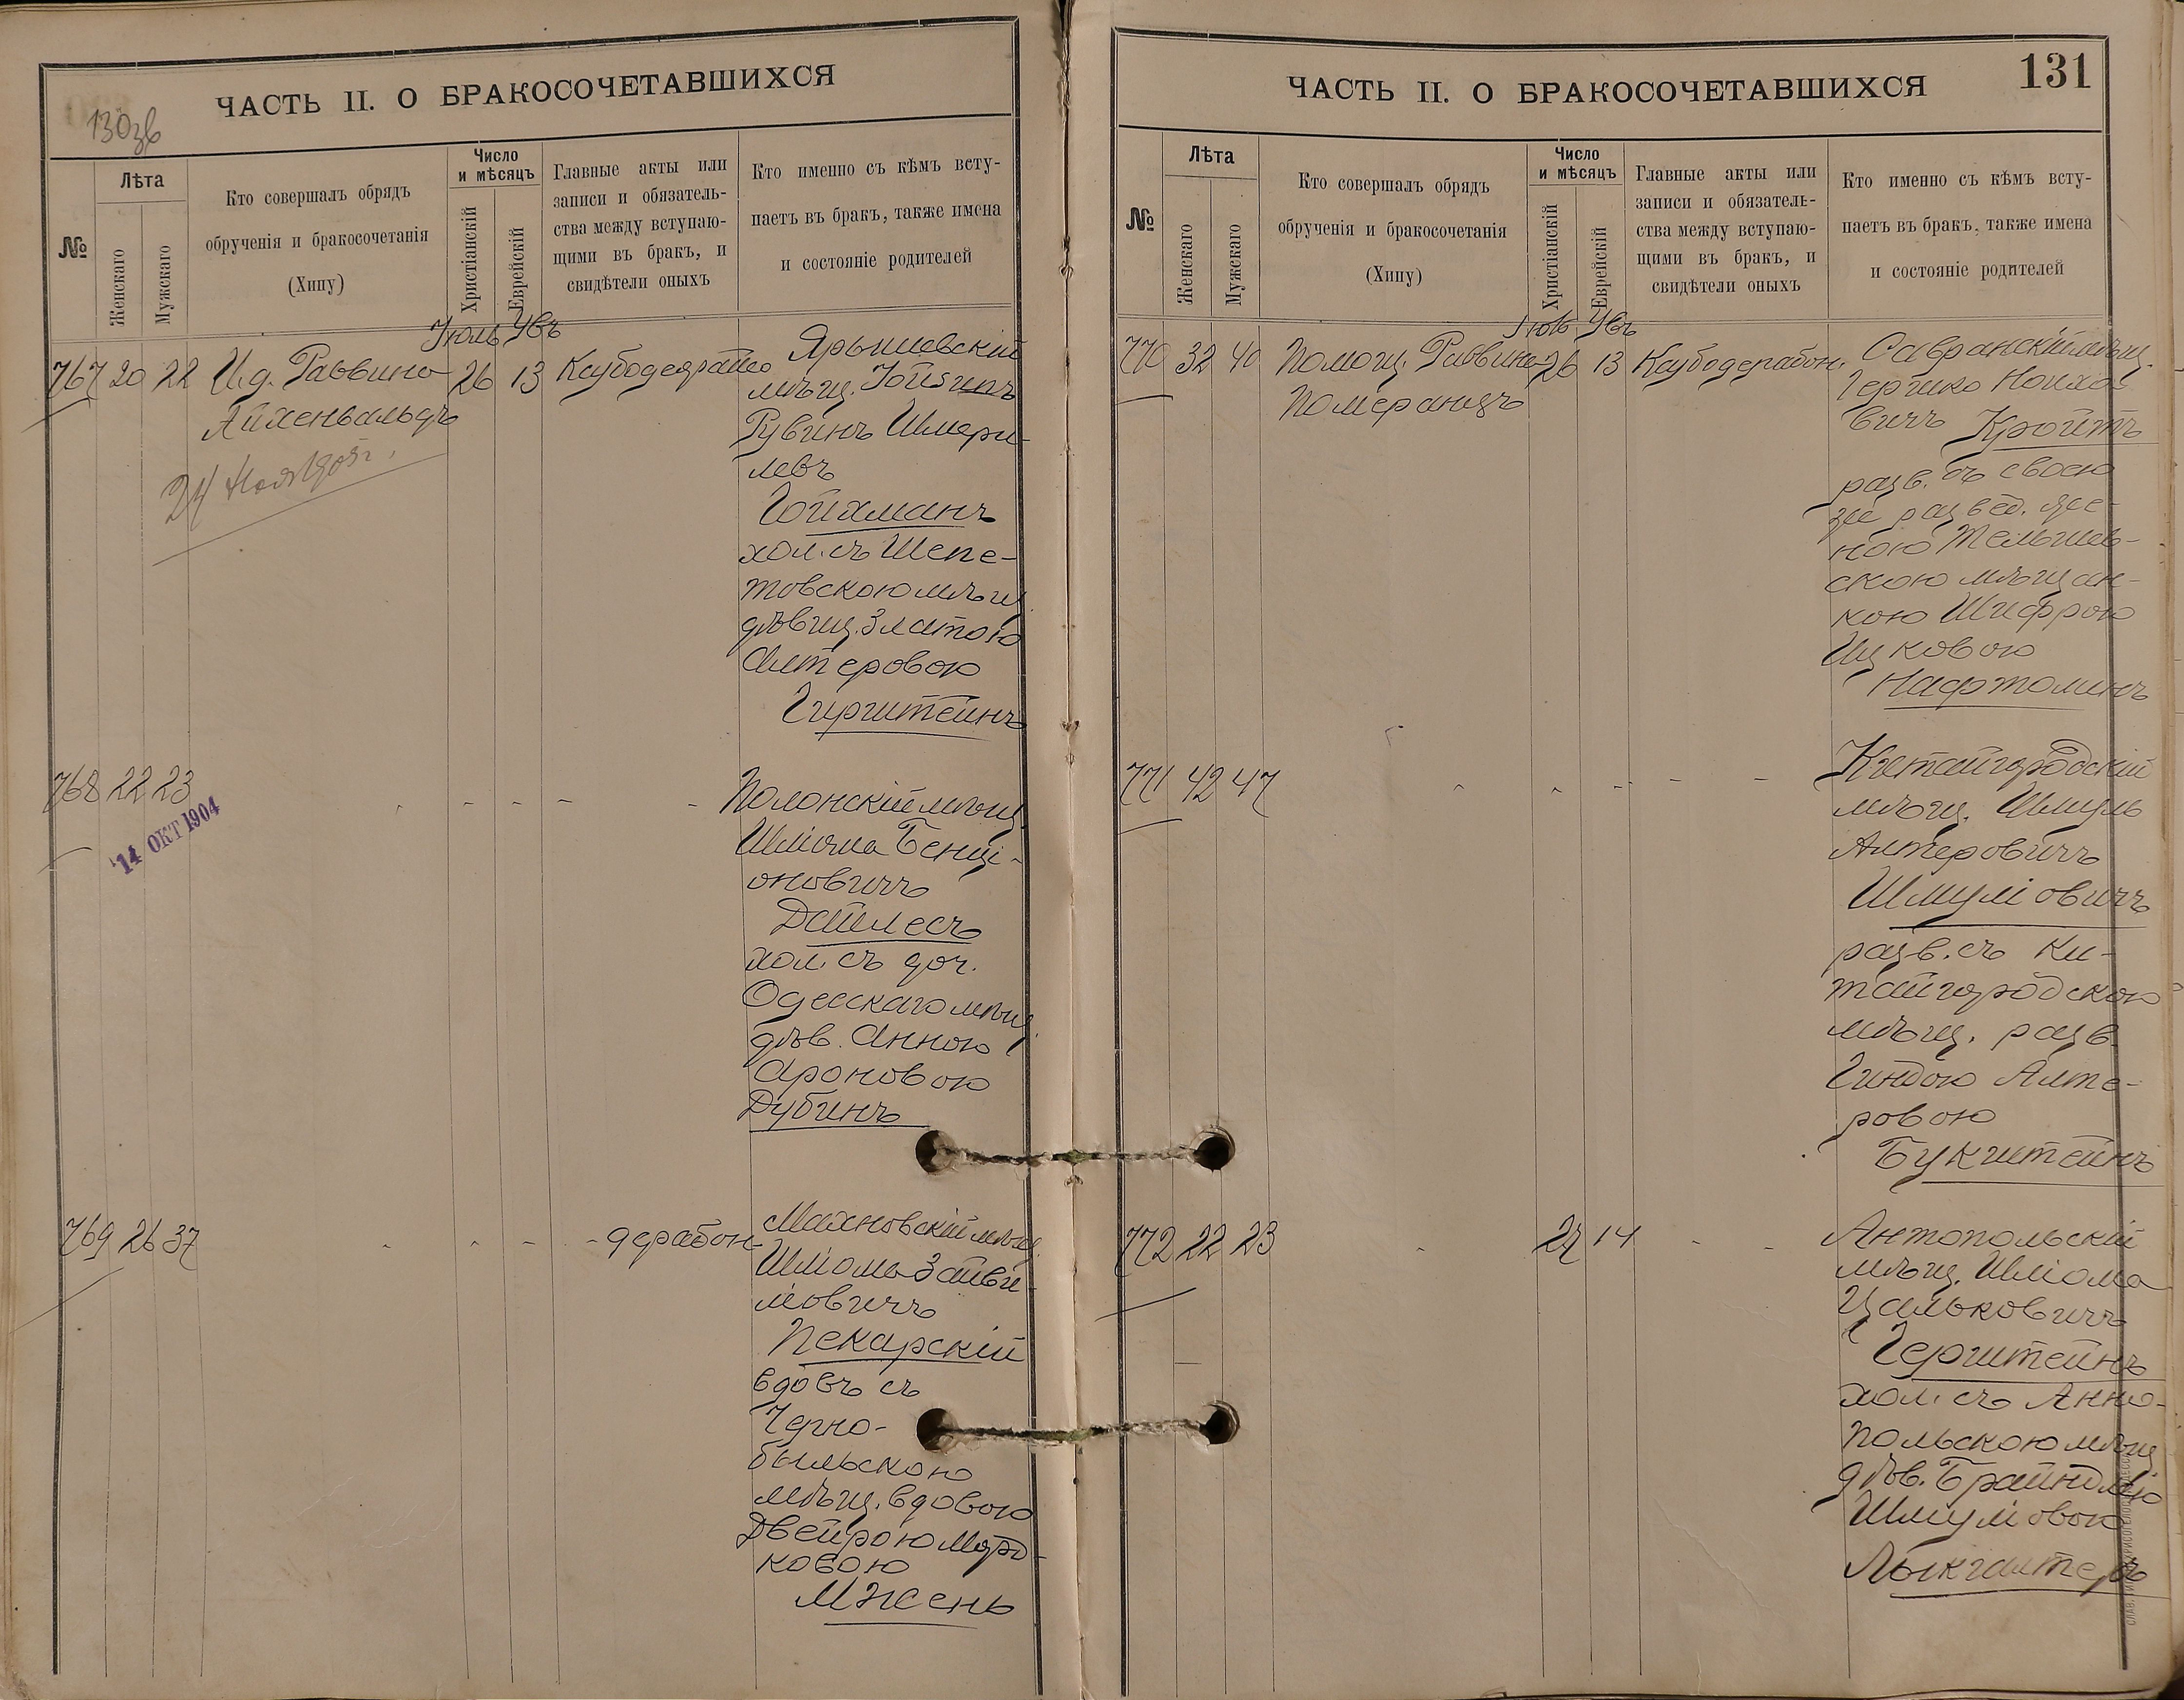 ЧАСТЬ II. О БРАКОСОЧЕТАВШИХСЯ
130зв
№
Лѣта
Женскаго
Мужскаго
Кто совершалъ обрядъ
обрученія и бракосочетанія
(Хипу)
Число
и мѣсяцъ
Христіанскій
Еврейскій
Главные акты или
записи и обязатель-
ства между вступаю-
щими въ бракъ, и
свидѣтели оныхъ
Кто именно съ кѣмъ всту-
паетъ въ бракъ, также имена
и состояніе родителей
Іюль Увъ
767 20 22 И.д. Раввина 26 13
Айхенвальдъ
24 Ноя 1905г.
Ярышевскій
мѣщ.
Рувинъ Шмери-
левъ
Гойхманъ
хол. съ Шепе-
товскою мѣщ.
дѣвиц. Златою
Алтеровою
Гирштейнъ
768 22 23
14 ОКТ 1904
Полонскій мѣщ.
Шліома Бенці-
оновичъ
Дайлесъ
хол. съ доч.
Одесскаго мѣщ.
дѣв. Анною
Ароновою
Дубинъ
769 26 37 дерабон.
Махновскій мѣщ.
Шліома Зайви-
ловичъ
Пекарскій
вдовъ съ
Черно-
быльскою
мѣщ. вдовою
Двейрою Мордо-
ковою
Мжень
ЧАСТЬ II. О БРАКОСОЧЕТАВШИХСЯ
131
№
Лѣта
Женскаго
Мужскаго
Кто совершалъ обрядъ
обрученія и бракосочетанія
(Хипу)
Число
и мѣсяцъ
Христіанскій
Еврейскій
Главные акты или
записи и обязатель-
ства между вступаю-
щими въ бракъ, и
свидѣтели оныхъ
Кто именно съ кѣмъ всту-
паетъ въ бракъ, также имена
и состояніе родителей
Іюль Увъ
770 32 40 Помощ. Раввина 26 13 Каубодерабон.
Померанцъ
Савранскій мѣщ.
Гершко
вичъ Кройтъ
разв. съ своею
же развед. же-
ною Тельшев-
скою мѣщан-
кою Шифрою
Ицковою
Нафтолинъ
771 42 47
Китайгородскій
мѣщ. Шмуль
Алтеровичъ
Шмуліовичъ
разв. съ Ки-
тайгородскою
мѣщ. разв.
Гиндою Алте-
ровою
Букштейнъ
772 22 23 27 14
Антопольскій
мѣщ. Шліома
Цальковичъ
Герштейнъ
хол. съ Анно-
польскою мѣщ.
дѣв. Брайндлею
Шмуловою